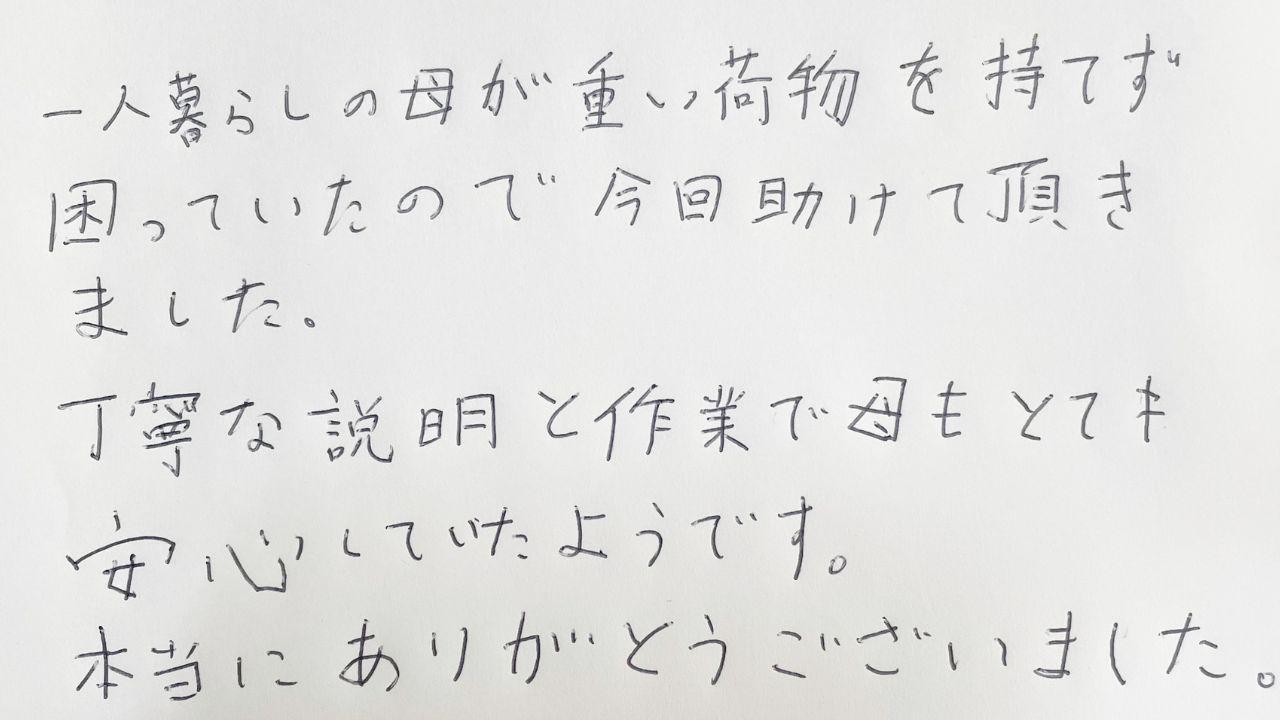 一人暮らしの母が重い荷物を持てず
困っていたので今回助けて頂き
ました。
丁寧な説明と作業で母もとても
安心していたようです。
本当にありがとうございました。